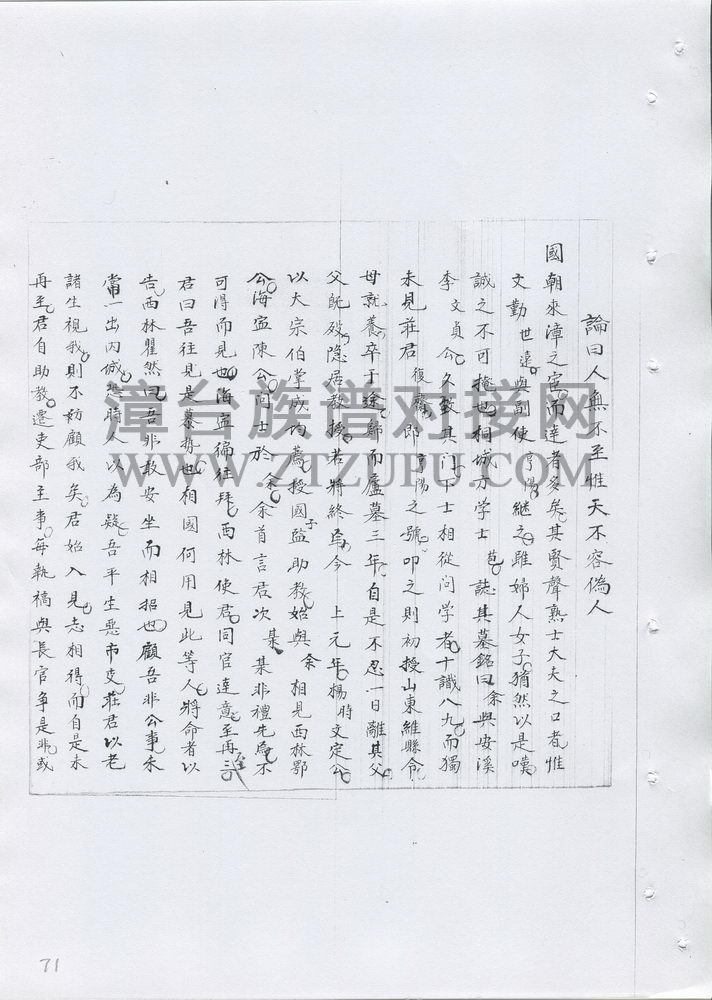 論曰人無不至惟天不容偽人
國朝來漳之宦而達者多矣其賢聲熟士大夫之口者惟
文勤世遠與副使亨陽繼之雖婦人女子猶然以是嘆
誠之不可掩也桐城方學士苞誌其墓銘曰余與安溪
李文貞公久致其門下士相從问学者十識八九而獨
未見莊君復齋郎亨陽之號叩之則初授山東維縣令
母就養卒于途歸而廬墓三年自是不忍一日離其父
父既歿隱居教授若將終焉今上元年楊時文定公
以大宗伯掌成均薦授國子監助教始與余相見西林鄂
公海寍陳公问士於余余首言君次某某非禮先焉不
可得而見也海寍徧往拜西林使君同官達意至再三至
君曰吾往見是慕势也相國何用見此等人將命者以
告西林瞿然曰吾非敢安坐而相招也顧吾非公事未
嘗一出内城恐時人以為疑吾平生惡市交莊君以老
諸生視我則不妨顧我矣君始入見志相得而自是未
再至君自助教遷吏部主事每執稿與長官争是非或
漳台族谱对接网
WWW.ZTZUPU.COM
71